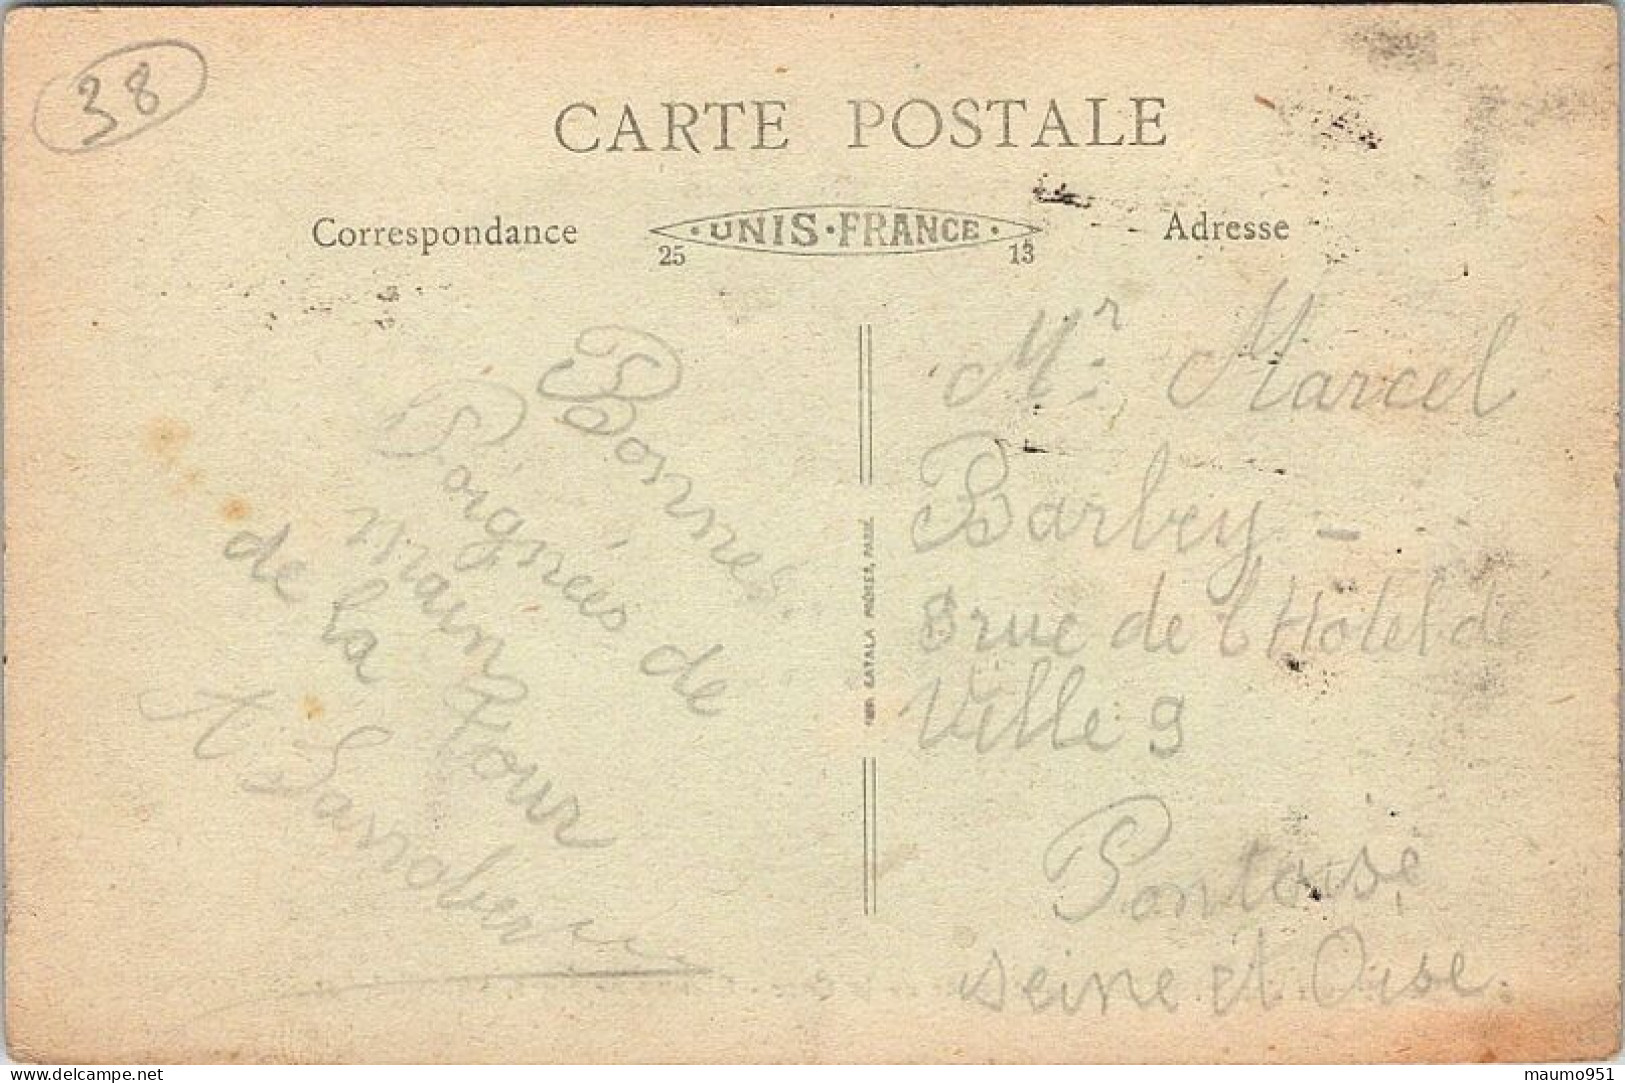 38
CARTE POSTALE
Correspondance
UNIS·FRANCE
25 13
Adresse
Bonnes
Poignées de
main Pour
de la
A
IMP. CATALA FRÈRES, PARIS
Mr Marcel
Barbey -
8 rue de l'Hotel de
Ville 9
Pontoise
Seine et Oise.
delcampe.net
maumo951